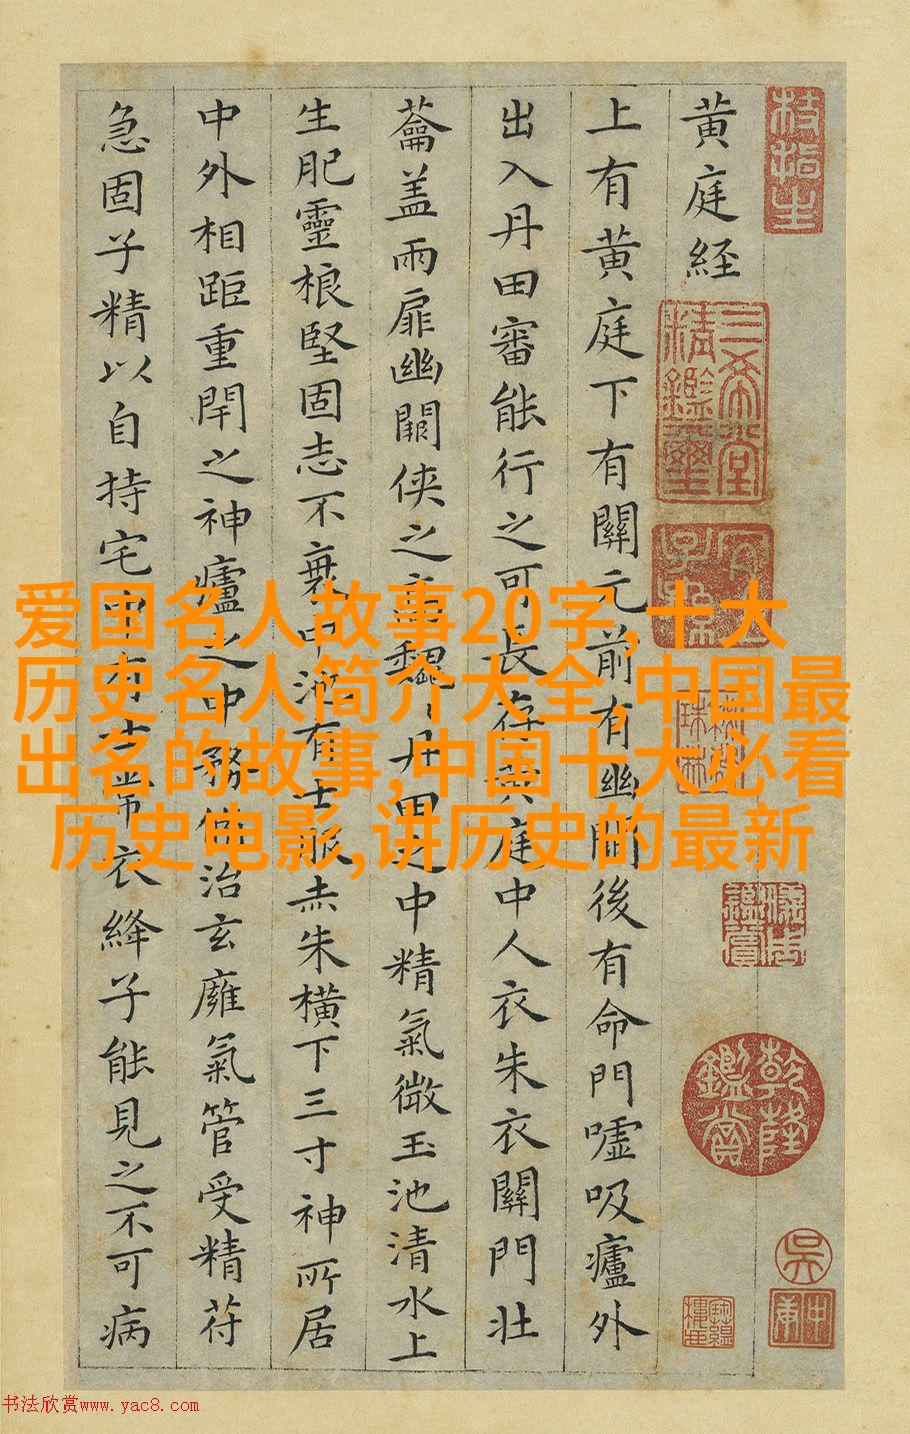 枝指生
三希堂
精鑑璽
黄庭経
上有黄庭下有關元前有幽闕後有命門嘘吸廬外
出入丹田審能行之可長存黄庭中人衣朱衣關門壯
蘥盖兩扉幽闕侠之髙巍丹田之中精氣微玉池清水上
生肥靈根堅固志不衰中池有士服赤朱横下三寸神所居
中外相距重閇之神廬之中務脩治玄廱氣管受精苻
急固子精以自持宅中有士常衣絳子能見之不可病
爱国名人故事20字,十大
历史名人简介大全,中国最
出名的故事,中国十大必看
历史电影,讲历史的最新
乾隆
鑑賞
吳
书法欣赏www.yac8.com